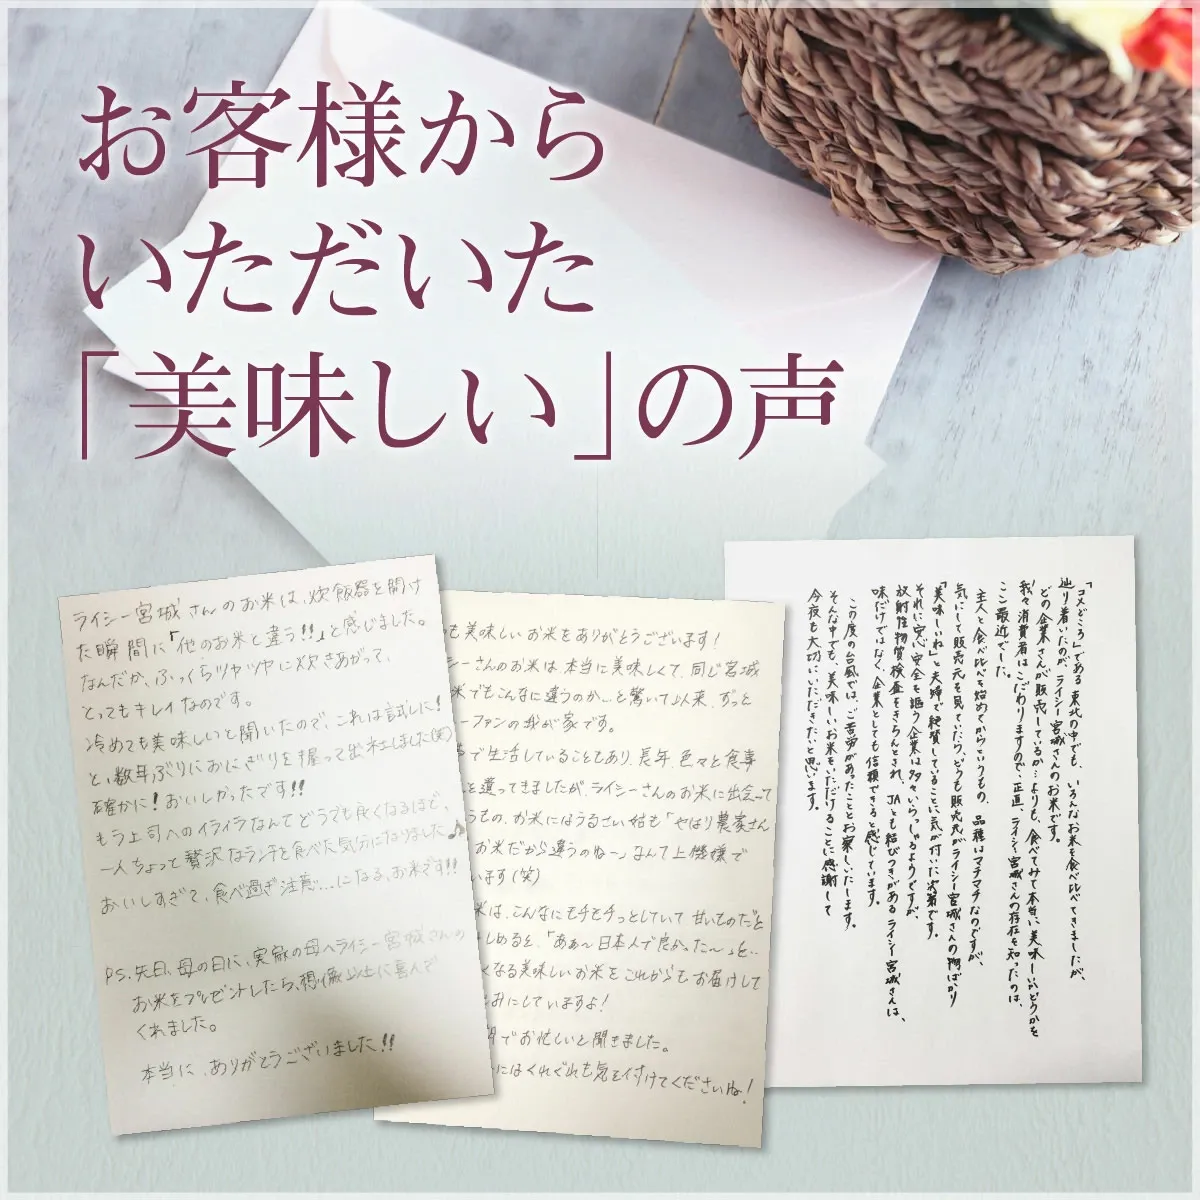 お客様から
いただいた
「美味しい」の声
ライシー宮城さんのお米は、炊飯器を開け
た瞬間に「他のお米と違う!!」と感じました。
なんだか、ふっくらツヤツヤに炊きあがって、
とってもキレイなのです。
冷めても美味しいと聞いたので、これは試しに!
と、数年ぶりにおにぎりを握って出社しました(笑)
確かに!おいしかったです!!
もう上司へのイライラなんてどうでも良くなるほど、
一人ちょっと贅沢なランチを食べた気分になりました♪
おいしすぎて、食べ過ぎ注意…になる、お米です!!
P.S. 先日、母の日に、実家の母へライシー宮城さんの
お米をプレゼントしたら、想像以上に喜んで
くれました。
本当に、ありがとうございました!!
も美味しいお米をありがとうございます!
シーさんのお米は本当に美味しくて、同じ宮城
米でもこんなに違うのか…と驚いて以来、ずっと
ーファンの我が家です。
で生活していることもあり、長年、色々と食事
を違ってきましたが、ライシーさんのお米に出会って
うもの、お米にはうるさい姑も「やはり農家さん
お米だから違うのねー」なんて上機嫌で
います(笑)
米は、こんなにモチモチっとしていて甘いものだと
しめると、「あぁ〜日本人で良かった〜」と…
くなる美味しいお米をこれからもお届けして
しみにしていますよ!
でお忙しいと聞きました。
にはくれぐれも気を付けてくださいね!
「コメどころ」である東北の中でも、いろんなお米を食べ比べてきましたが、
辿り着いたのが、ライシー宮城さんのお米です。
どの企業さんが販売しているか…よりも、食べてみて本当に美味しいかどうかを
我々消費者はこだわりますので、正直、ライシー宮城さんの存在を知ったのは、
ここ最近でした。
主人と食べ比べを始めてからというもの、品種はマチマチなのですが、
気にして販売元を見ていたら、どうも販売元がライシー宮城さんの物ばかり
「美味しいね」と夫婦で絶賛していることに気が付いた次第です。
それに安心、安全を謳う企業は多々いらっしゃるようですが、
放射性物質検査をきちんとされ、JAとも結びつきがあるライシー宮城さんは、
味だけではなく、企業としても信頼できると感じています。
この度の台風では、ご苦労があったこととお察しいたします。
そんな中でも、美味しいお米をいただけることに感謝して
今夜も大切にいただきたいと思います。